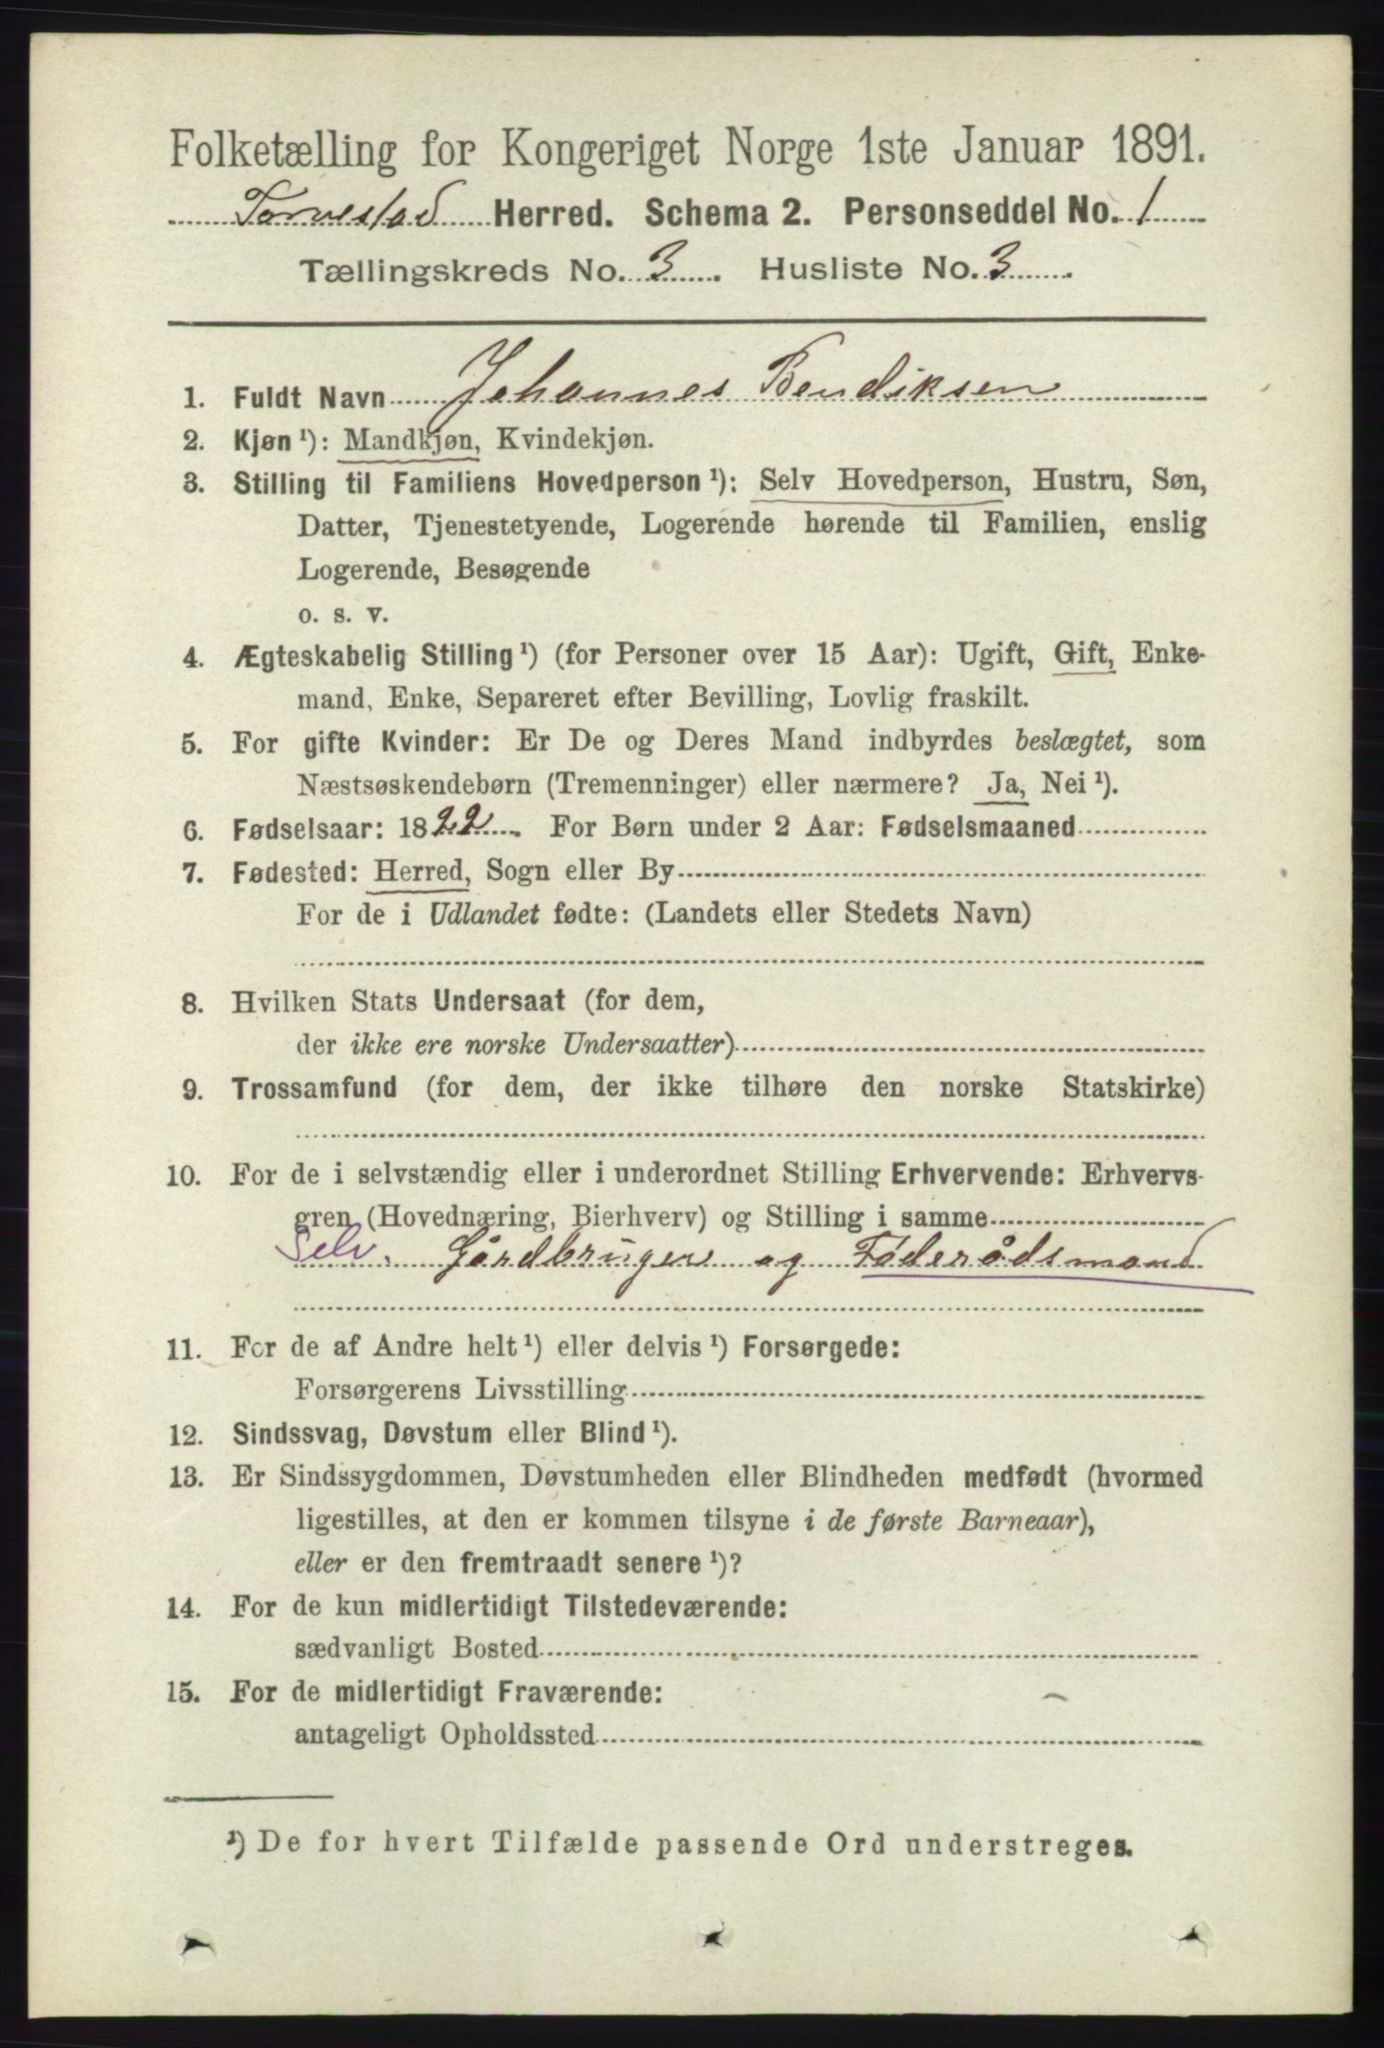 Folketælling for Kongeriget Norge 1ste Januar 1891.
Torvestad Herred. Schema 2. Personseddel No. 1
Tællingskreds No. 3. Husliste No. 3
1. Fuldt Navn Johannes Bendiksen
2. Kjøn ¹): Mandkjøn, Kvindekjøn.
3. Stilling til Familiens Hovedperson ¹): Selv Hovedperson, Hustru, Søn,
Datter, Tjenestetyende, Logerende hørende til Familien, enslig
Logerende, Besøgende
o. s. v.
4. Ægteskabelig Stilling ¹) (for Personer over 15 Aar): Ugift, Gift, Enke-
mand, Enke, Separeret efter Bevilling, Lovlig fraskilt.
5. For gifte Kvinder: Er De og Deres Mand indbyrdes beslægtet, som
Næstsøskendebørn (Tremenninger) eller nærmere? Ja, Nei ¹).
6. Fødselsaar: 1822. For Børn under 2 Aar: Fødselsmaaned
7. Fødested: Herred, Sogn eller By
For de i Udlandet fødte: (Landets eller Stedets Navn)
8. Hvilken Stats Undersaat (for dem,
der ikke ere norske Undersaatter)
9. Trossamfund (for dem, der ikke tilhøre den norske Statskirke)
10. For de i selvstændig eller i underordnet Stilling Erhvervende: Erhvervs-
gren (Hovednæring, Bierhverv) og Stilling i samme
Selv. Gårdbruger og Föderådsmand
11. For de af Andre helt ¹) eller delvis ¹) Forsørgede:
Forsørgerens Livsstilling
12. Sindssvag, Døvstum eller Blind ¹).
13. Er Sindssygdommen, Døvstumheden eller Blindheden medfødt (hvormed
ligestilles, at den er kommen tilsyne i de første Barneaar),
eller er den fremtraadt senere ¹)?
14. For de kun midlertidigt Tilstedeværende:
sædvanligt Bosted
15. For de midlertidigt Fraværende:
antageligt Opholdssted
¹) De for hvert Tilfælde passende Ord understreges.